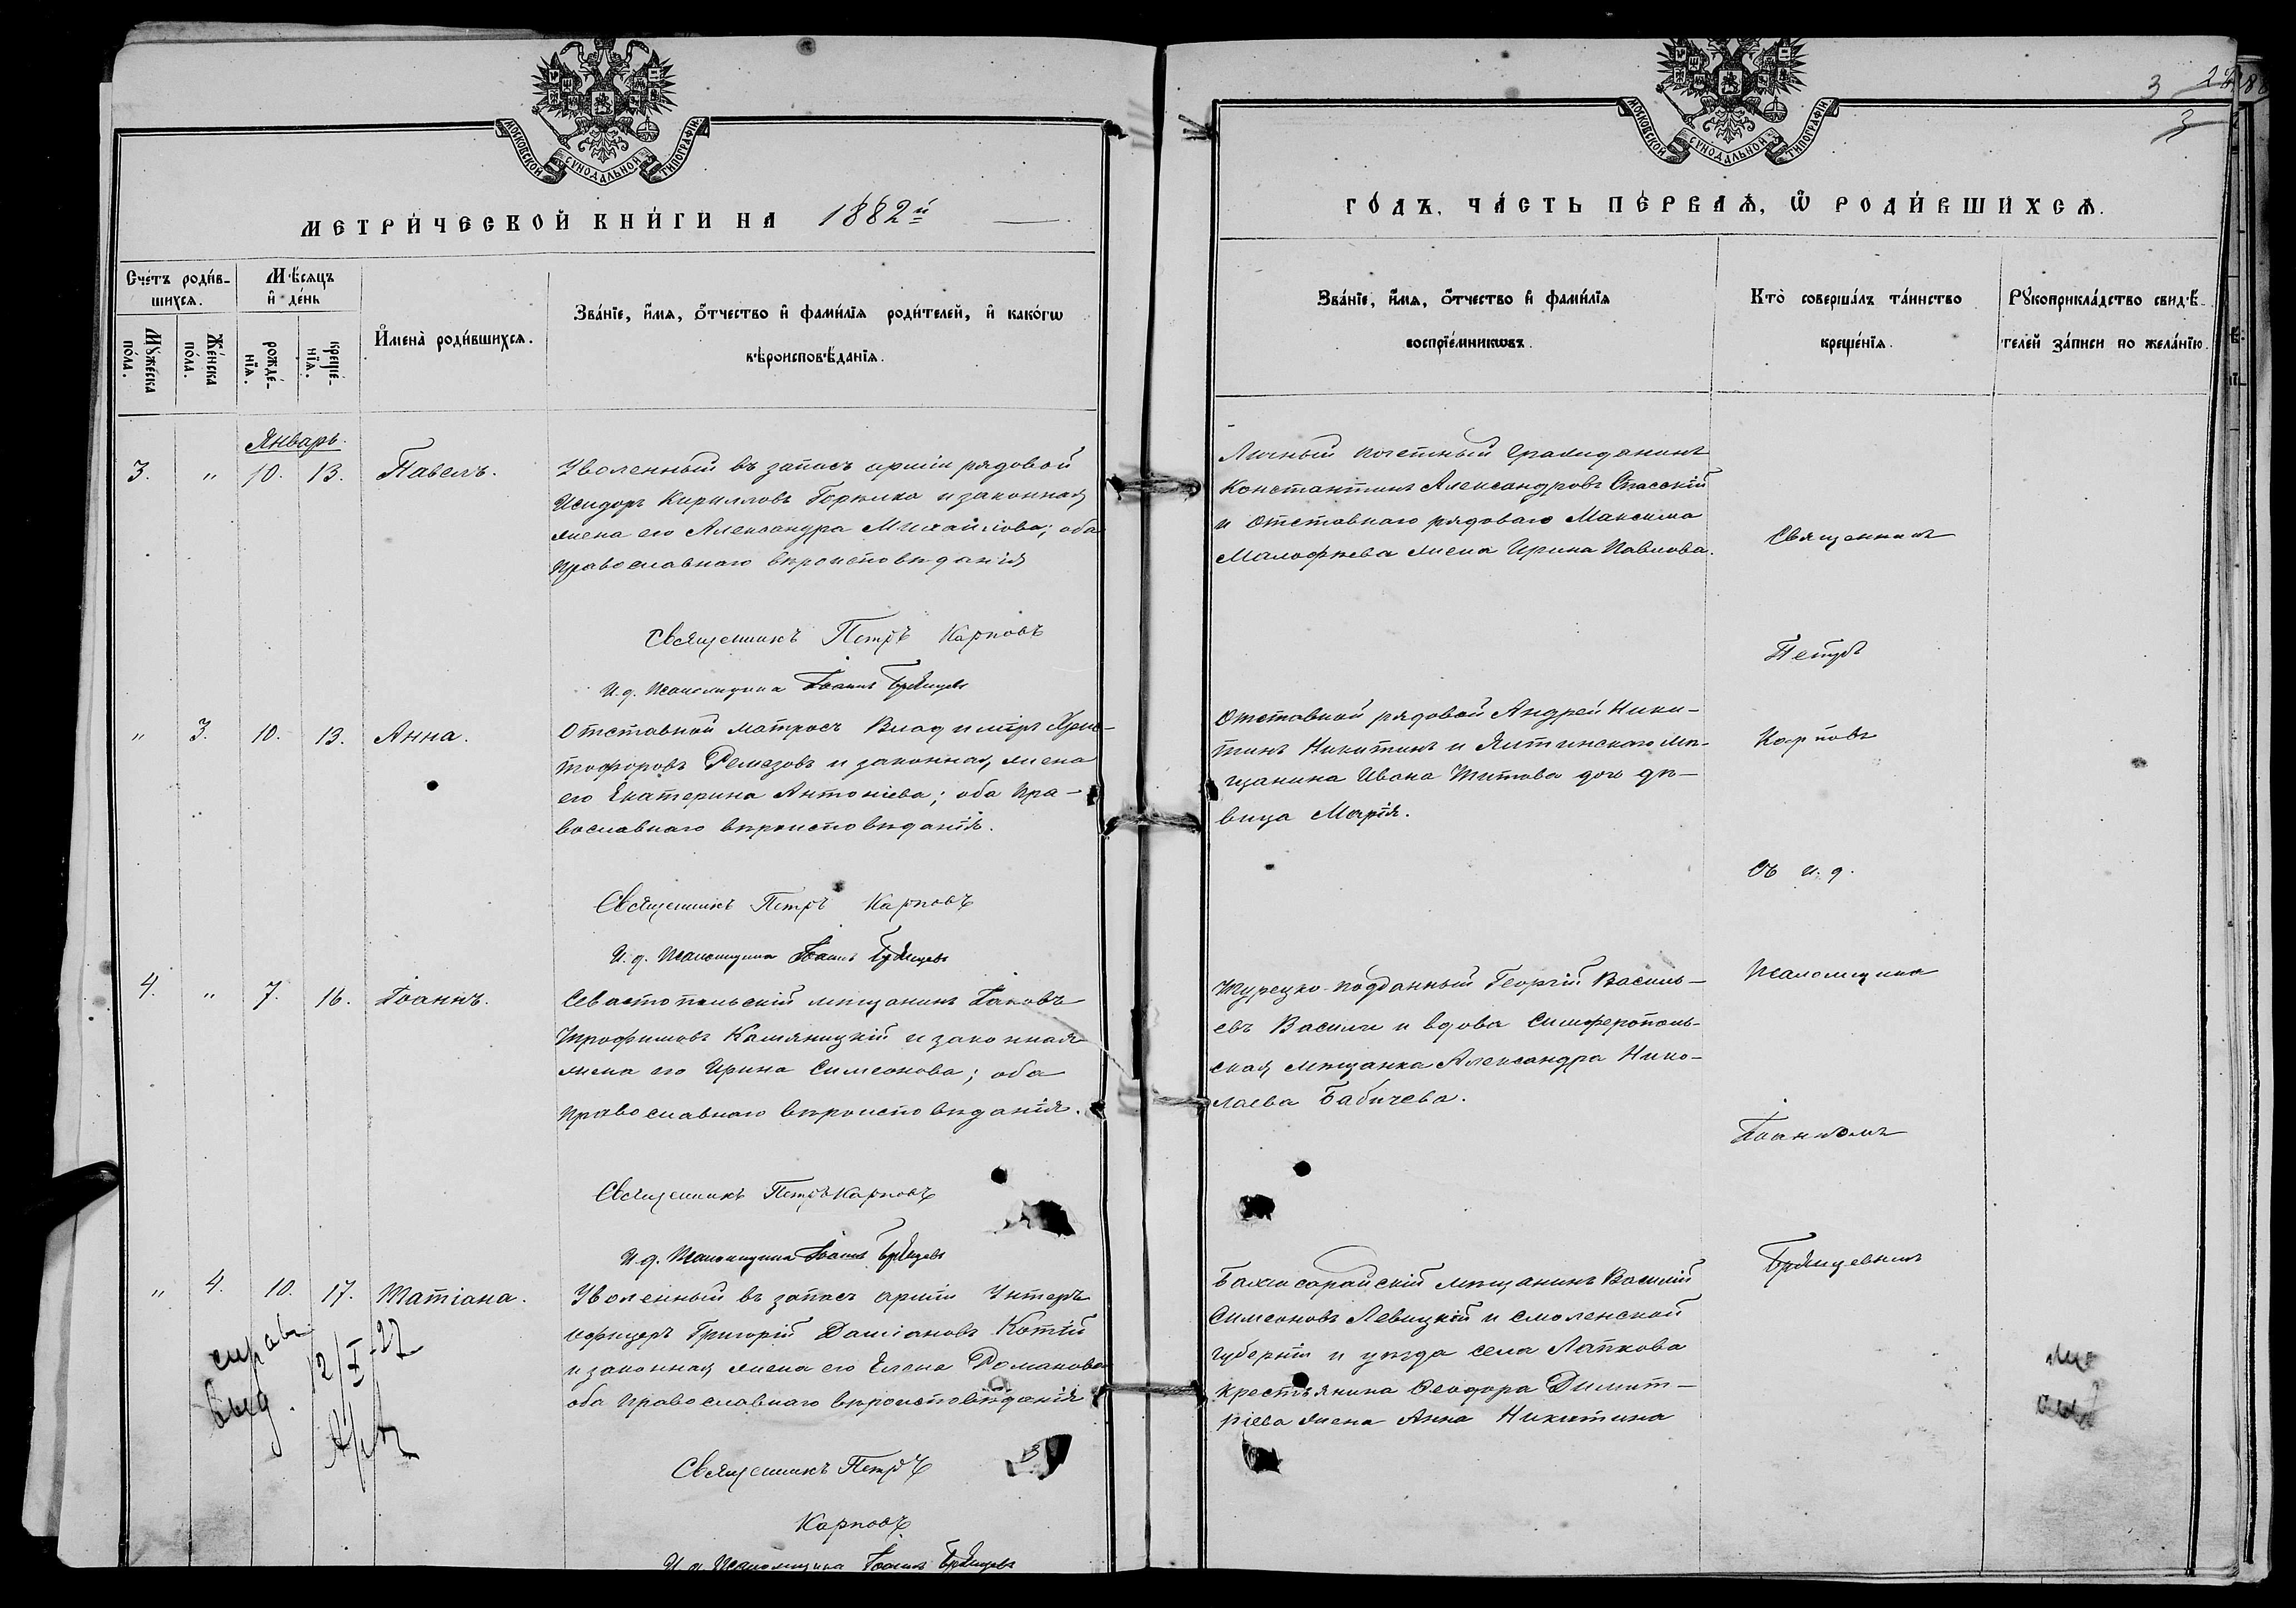 МОСКОВСКОЙ СѴНОДАЛЬНОЙ ТИПОГРАФІИ
МЕТРИЧЕСКОЙ КНИГИ НА 1882й
Счетъ родив-
шихся.
Мѣсяцъ
и день
Мужеска
пола.
Женска
пола.
рожде-
нія.
креще-
нія.
Имена родившихся.
Званіе, имя, отчество и фамилія родителей, и какогѡ
вѣроисповѣданія.
Январь.
3. " 10. 13. Павелъ.
Уволенный въ запасъ арміи рядовой
Исидоръ Кирилловъ Горюнка и законная
жена его Александра Михайлова; оба
православнаго вѣроисповѣданія
Священникъ Петръ Карповъ
И. д. Псаломщика Іоаннъ Брянцевъ
" 3. 10. 13. Анна.
Отставной матросъ Владиміръ Хрис-
тофоровъ Ремезовъ и законная жена
его Екатерина Антоніева; оба пра-
вославнаго вѣроисповѣданія.
Священникъ Петръ Карповъ
И. д. Псаломщика Іоаннъ Брянцевъ
4. " 7. 16. Іоаннъ.
Севастопольскій мѣщанинъ Іаковъ
Трофимовъ Камяницкій и законная
жена его Ирина Симеонова; оба
православнаго вѣроисповѣданія.
Священникъ Петръ Карповъ
И. д. Псаломщика Іоаннъ Брянцевъ
" 4. 10. 17. Татіана.
Уволенный въ запасъ арміи Унтеръ
офицеръ Григорій Даміановъ Котій
и законная жена его Елена Романова
оба православнаго вѣроисповѣданія
справ.
выд.
12/X 27
Священникъ Петръ
Карповъ
И. д. Псаломщика Іоаннъ Брянцевъ
МОСКОВСКОЙ СѴНОДАЛЬНОЙ ТИПОГРАФІИ
3
3
ГОДЪ, ЧАСТЬ ПЕРВАЯ, Ѿ РОДИВШИХСЯ.
Званіе, имя, отчество и фамилія
воспріемникѡвъ.
Кто совершалъ таинство
крещенія.
Рукоприкладство свидѣ-
телей записи по желанію.
Личный почетный гражданинъ
Константинъ Александровъ Спасскій
и отставнаго рядоваго Максима
Малофѣева жена Ирина Павлова.
Отставной рядовой Андрей Ники-
тинъ Никитинъ и Ялтинскаго мѣ-
щанина Ивана Титова дочь дѣ-
вица Марія.
Турецко-подданный Георгій Василь-
евъ Васили и вдова Симферополь-
ская мѣщанка Александра Нико-
лаева Бабичева.
Бахчисарайскій мѣщанинъ Василій
Симеоновъ Левицкій и Смоленской
губерніи и уѣзда села Лапкова
крестьянина Ѳеодора Димит-
ріева жена Анна Никитина
Священникъ
Петръ
Карповъ
съ и. д.
Псаломщика
Іоанномъ
Брянцевымъ